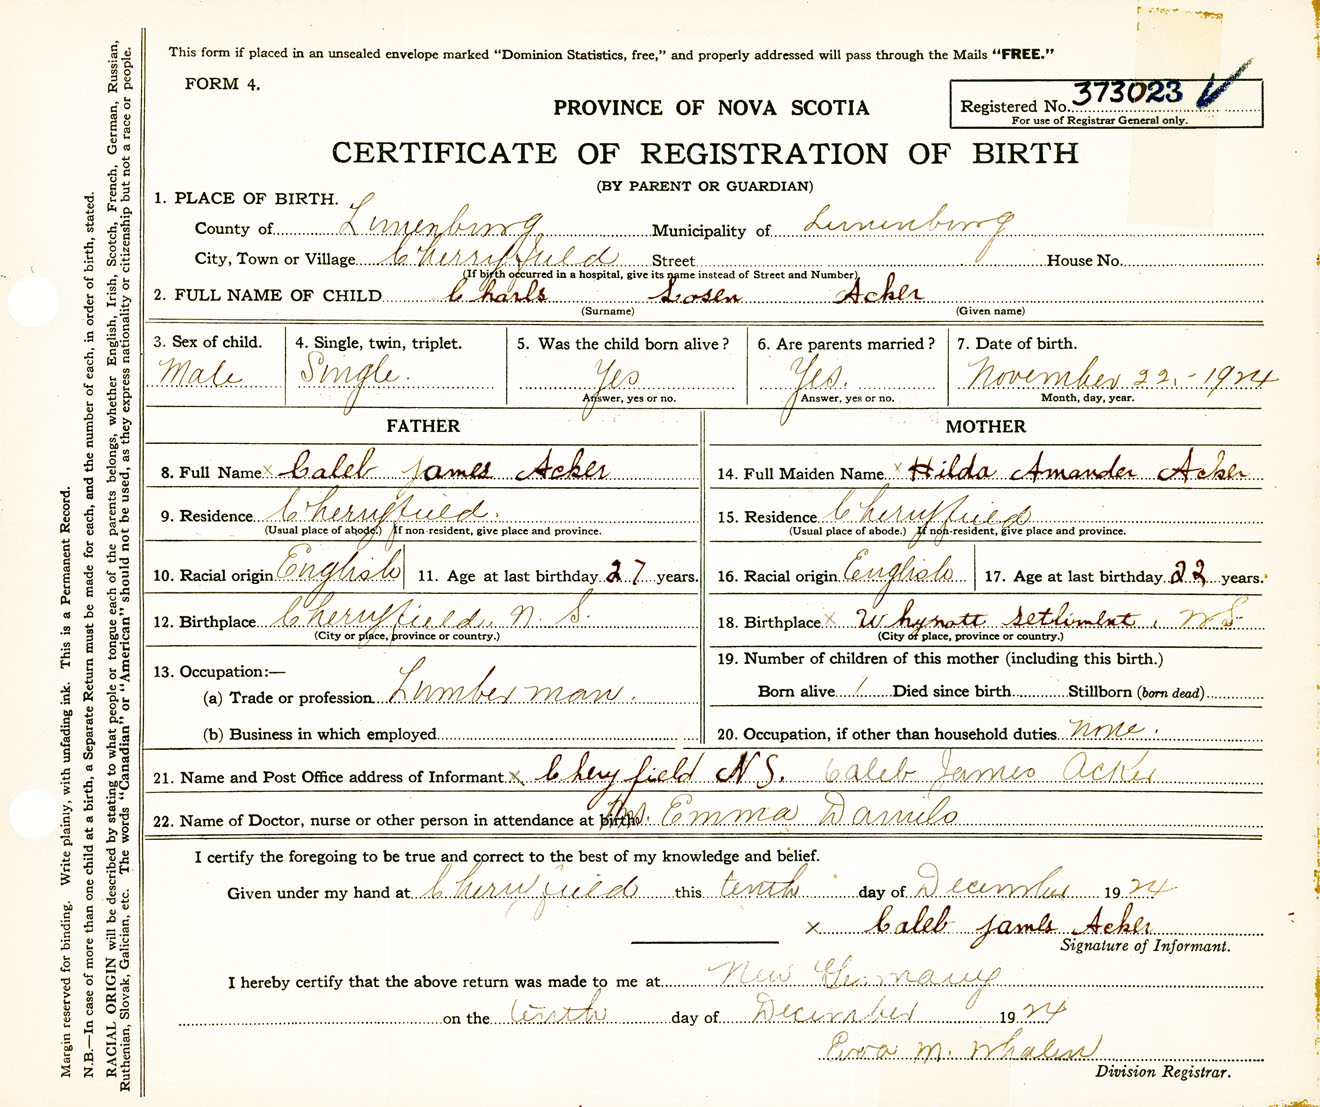 This form if placed in an unsealed envelope marked "Dominion Statistics, free," and properly addressed will pass through the Mails "FREE."
FORM 4.
PROVINCE OF NOVA SCOTIA
Registered No. 373023
For use of Registrar General only.
CERTIFICATE OF REGISTRATION OF BIRTH
(BY PARENT OR GUARDIAN)
1. PLACE OF BIRTH.
County of Lunenburg Municipality of Lunenburg
City, Town or Village Cherryfield Street House No.
(If birth occurred in a hospital, give its name instead of Street and Number)
2. FULL NAME OF CHILD Charls Losen Acker
(Surname) (Given name)
3. Sex of child. 4. Single, twin, triplet. 5. Was the child born alive? 6. Are parents married? 7. Date of birth.
Male Single. Yes Yes. November 22 - 1924
Answer, yes or no. Answer, yes or no. Month, day, year.
FATHER MOTHER
8. Full Name x Caleb James Acker 14. Full Maiden Name x Hilda Amander Acker
9. Residence Cherryfield. 15. Residence Cherryfield
(Usual place of abode.) If non-resident, give place and province. (Usual place of abode.) If non-resident, give place and province.
10. Racial origin English 11. Age at last birthday 27 years. 16. Racial origin English 17. Age at last birthday 22 years.
12. Birthplace Cherryfield. N. S. 18. Birthplace x Whynott Setlimént. N.S.
(City or place, province or country.) (City or place, province or country.)
13. Occupation:— 19. Number of children of this mother (including this birth.)
(a) Trade or profession Lumberman. Born alive 1 Died since birth Stillborn (born dead)
(b) Business in which employed 20. Occupation, if other than household duties none.
21. Name and Post Office address of Informant x Cheryfield NS. Caleb James Acker
22. Name of Doctor, nurse or other person in attendance at birth Mrs. Emma Daniels
I certify the foregoing to be true and correct to the best of my knowledge and belief.
Given under my hand at Cherryfield this tenth day of December 1924
x Caleb James Acker
Signature of Informant.
I hereby certify that the above return was made to me at New Germany
on the tenth day of December 1924
M. Whalen
Division Registrar.
Margin reserved for binding. Write plainly, with unfading ink. This is a Permanent Record.
N.B.—In case of more than one child at a birth, a Separate Return must be made for each, and the number of each, in order of birth, stated.
RACIAL ORIGIN will be described by stating to what people or tongue each of the parents belongs, whether English, Irish, Scotch, French, German, Russian,
Ruthenian, Slovak, Galician, etc. The words "Canadian" or "American" should not be used, as they express nationality or citizenship but not a race or people.